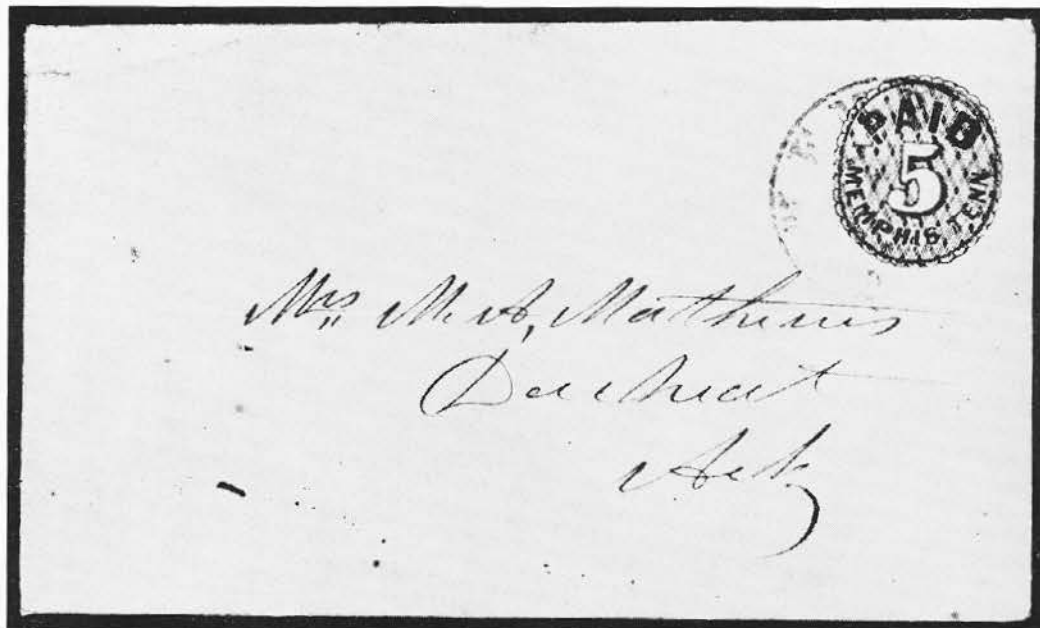 PAID
5
MEMPHIS, TENN
Mrs M. A. Mathews
Ark